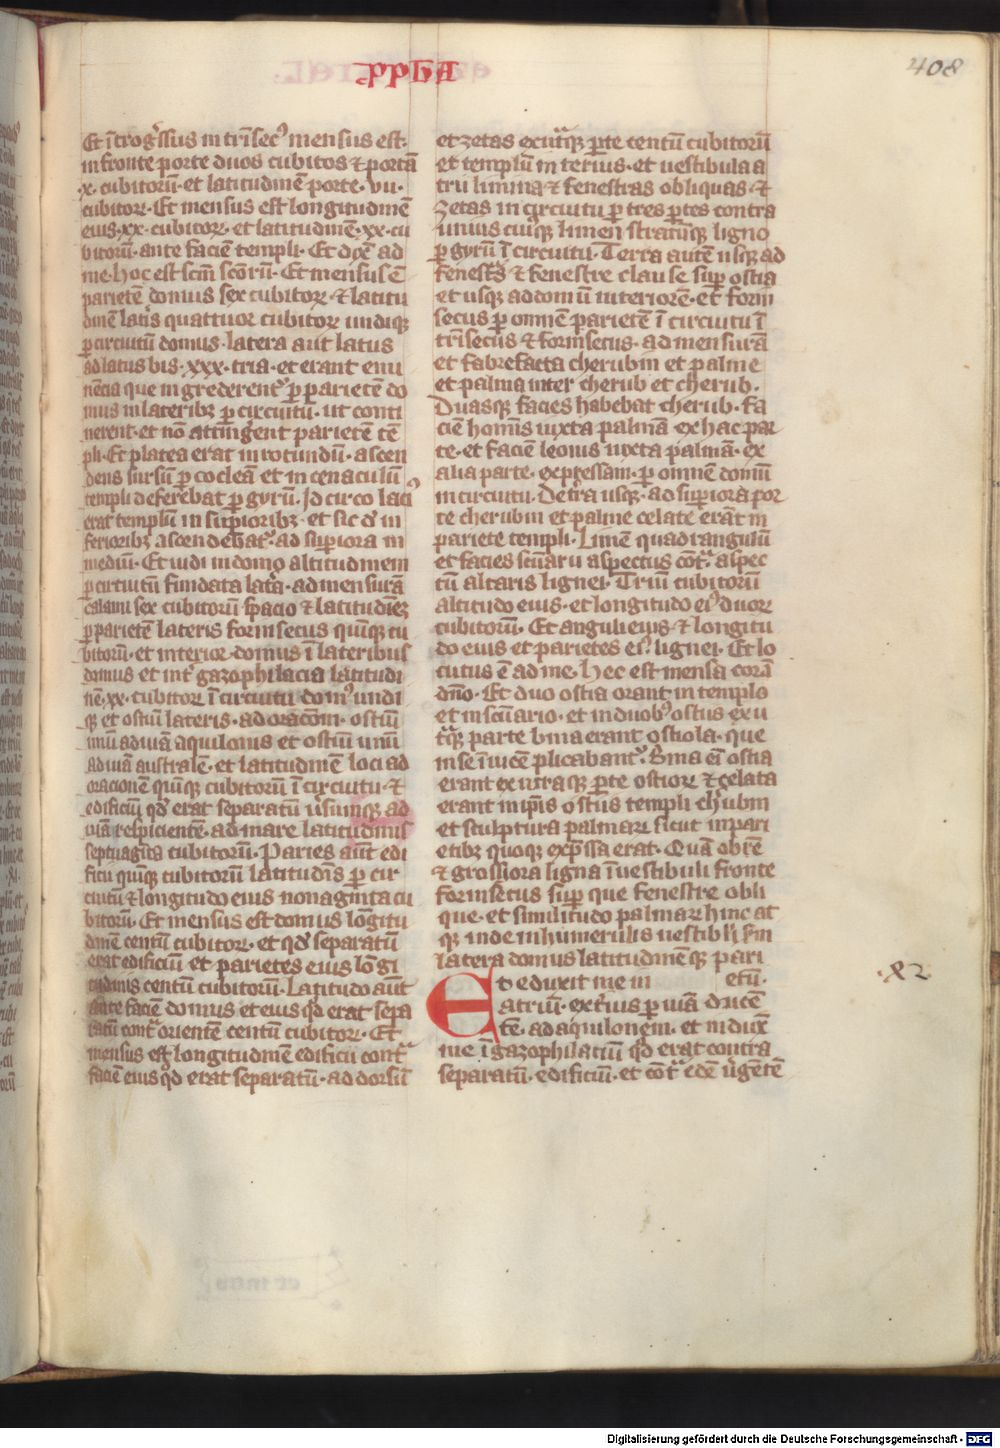 pphA
408
Et ītrogssus intrīsecꝰ mensus est
in fronte porte duos cubitos ⁊ portā
.x. cubitorū. et latitudinē porte. vii.
cubitoꝝ. Et mensus est longitudinē
eius .xx. cubitoꝝ. et latitudinē .xx. cu
bitorū. ante faciē templi. Et dix̄ ad
me. hoc est scm̄ scōrū. Et mensus ē
parietē domus sex cubitoꝝ ⁊ latitu
dinē latis quattuor cubitoꝝ undiqꝫ
ꝑ circuitū domus. latera aut latus
ad latus bis .xxx. tria. et erant emi
nēcia que ingrederentᷣ ꝑ parietē do
mus in lateribꝫ ꝑ circuitū. ut conti
nerent. et nō attingent parietē tē
pli. Et platea erat in rotundū. ascen
dens sursū ꝑ cocleā et in cenaculū
templi deferebat ꝑ gyrū. Id circo laciꝰ
erat templū in supioribꝫ. et sic de in
ferioribꝫ ascendebatᷣ ad supiora in
mediū. Et uidi in domo altitudinem
ꝑ circuitū fundata lata. ad mensurā
calami sex cubitorū spacio ⁊ latitudinē
ꝑ parietē lateris forinsecus quinqꝫ cu
bitorū. et interior domus ī lateribus
domus et int gazophilacia latitudi
nē .xx. cubitoꝝ ī circuitu domꝰ undi
qꝫ et ostiū lateris. ad oracōm. ostiū
unū ad uiā aquilonis et ostiū unū
ad uiā australē. et latitudinē loci ad
oracionē quinqꝫ cubitorū ī circuitu. ⁊
edificiū qd erat separatū usumqꝫ ad
uiā respicientē. ad mare latitudinis
septuaginta cubitorū. Paries aūt edi
ficii quinqꝫ cubitorū latitudīs ꝑ cir
cuitū ⁊ longitudo eius nonaginta cu
bitorū. Et mensus est domus lōgitu
dinē centū cubitoꝝ. et qd separatū
erat edificiū et parietes eius lōgi
tudinis centū cubitorū. Latitudo aūt
ante faciē domus et eius qd erat sepa
ratū cont orientē centū cubitoꝝ. Et
mensus est longitudinē edificii cont
faciē eius qd erat separatū. ad dorsū
et zetas ex utqꝫ ꝑte centū cubitorū
et templū interius. et uestibula a
trii limina ⁊ fenestras obliquas. ⁊
zetas in circuitu ꝑ tres ꝑtes contra
unius cuiꝰqꝫ limen stratūqꝫ ligno
ꝑ gyrū ī circuitu. Terra autē usqꝫ ad
fenests ⁊ fenestre clause sup ostia
et usqꝫ ad domū interiorē. et forin
secus ꝑ omnē parietē ī circuitu ī
trīsecus ⁊ forinsecus. ad mensurā
et fabrefacta cherubin et palme
et palma inter cherub et cherub.
Duasqꝫ facies habebat cherub. fa
ciē hominis iuxta palmā ex hac par
te. et faciē leonis iuxta palmā. ex
alia parte. expressam. ꝑ omnē domū
in circuitu. De tra usqꝫ. ad supiora por
te cherubin et palme celate erāt in
pariete templi. Limē quadrangulū
et facies scūarii aspectus cōt aspec
tū altaris lignei. Triū cubitorū
altitudo eius. et longitudo eiꝰ duoꝝ
cubitorū. Et anguli eius. ⁊ longitu
do eius et parietes eiꝰ lignei. Et lo
cutus ē ad me. hec est mensa corā
dno. Et duo ostia erant in templo
et in scūario. et in duobꝰ ostiis ex u
tqꝫ parte bina erant ostiola. que
in se īuicē plicabantᷣ. Bina eī ostia
erant ex utraqꝫ ꝑte ostioꝝ ⁊ celata
erant in ipīs ostiis templi chubin
et sculptura palmarū sicut in pari
etibꝫ quoqꝫ expssa erat. Quā ob rē
⁊ grossiora ligna ī uestibuli fronte
forinsecus sup que fenestre obli
que. et similitudo palmaꝝ hinc at
qꝫ inde in humerulis uestibli sm
latera domus latitudinēqꝫ pari
Et eduxit me in etū.
atriū. extius ꝑ uiā ducē
tē. ad aquilonem. et indux̄
me ī gazophilatiū qd erat contra
separatū. edificiū. et cōt edē ugentē
.x2
Digitalisierung gefördert durch die Deutsche Forschungsgemeinschaft - DFG